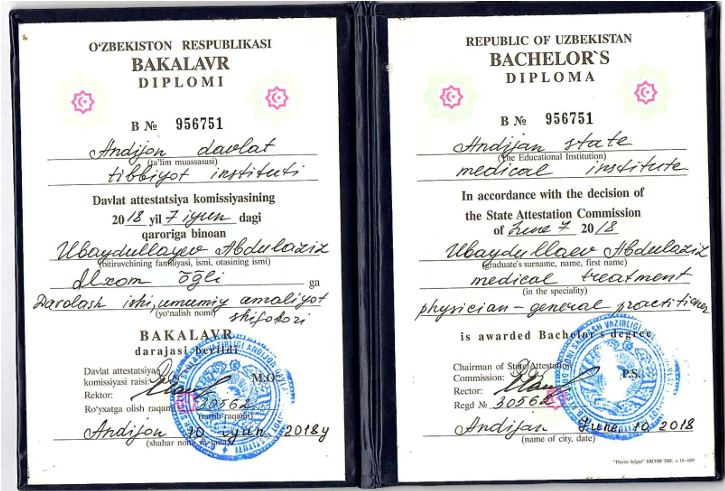 O‘ZBEKISTON RESPUBLIKASI
BAKALAVR
DIPLOMI
B № 956751
Andijon davlat
(ta'lim muassasasi)
tibbiyot instituti
Davlat attestatsiya komissiyasining
2018 yil 7 iyun dagi
qaroriga binoan
Ubaydullayev Abdulaziz
(bitiruvchining familiyasi, ismi, otasining ismi)
Ilxom o‘g‘li ga
Davolash ishi, umumiy amaliyot
(yo‘nalish nomi)
shifokori
BAKALAVR
darajasi berildi
Davlat attestatsiya
komissiyasi raisi:
M.O‘.
Rektor:
Ro‘yxatga olish raqami 30562
(tartib raqami)
Andijon 10 iyun 2018 y
(shahar nomi,
REPUBLIC OF UZBEKISTAN
BACHELOR`S
DIPLOMA
B № 956751
Andijan state
(The Educational Institution)
medical institute
In accordance with the decision of
the State Attestation Commission
of June 7 2018
Ubaydullaev Abdulaziz
(graduate's surname, name, first name)
medical treatment
(in the speciality)
physician - general practitioner
is awarded Bachelor's degree
Chairman of State Attestation
Commission:
P.S.
Rector:
Regd № 30562
Andijan June, 10 2018
(name of city, date)